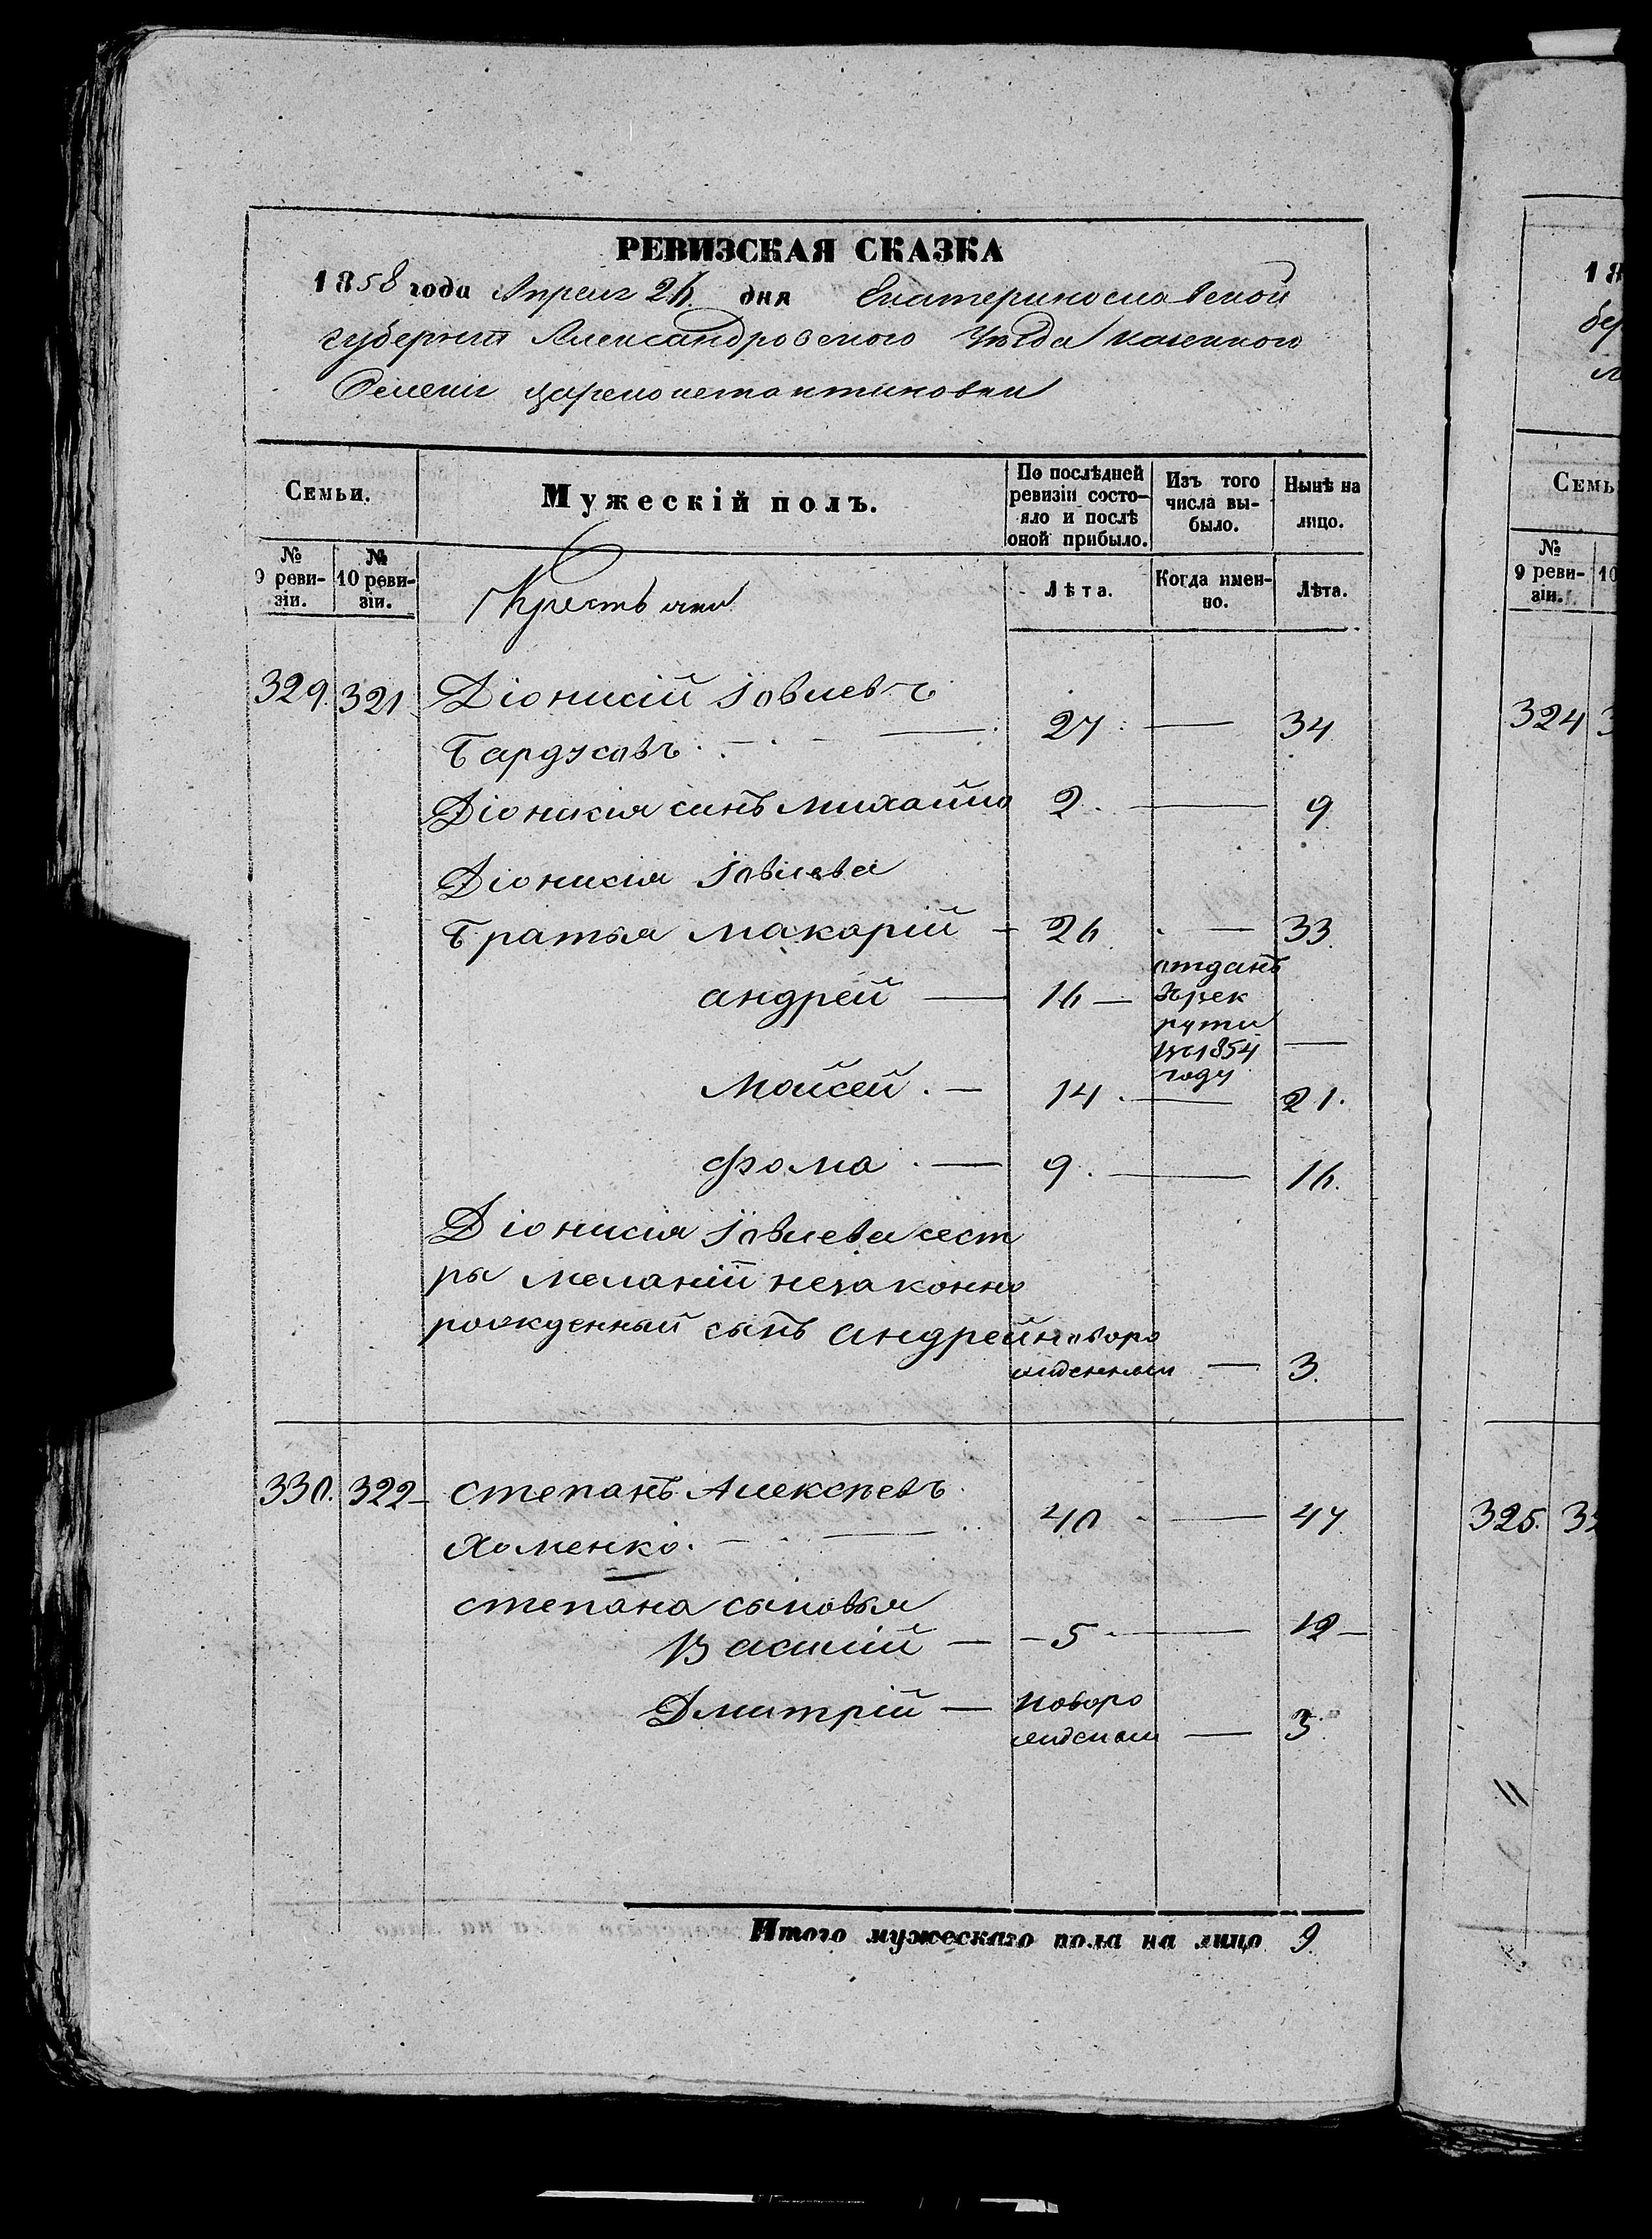 РЕВИЗСКАЯ СКАЗКА
1858 года Апреля 26 дня Екатеринославской
губернии Александровского Уѣзда казенного
Селения Царемонстантиновки
Семьи.
Мужескій полъ.
По послѣдней ревизіи состо-яло и послѣ оной прибыло.
Изъ того числа вы-было.
Нынѣ на лицо.
№ 9 реви-зіи.
№ 10 реви-зіи.
Крестьяне
Лѣта.
Когда имен-но.
Лѣта.
329. 321 Діонисій Іовлевъ
Бардусовъ 27 — 34
Діонисія синъ михайло 2 — 9
Діонисія Іовлева
Братья макарій — 26 — 33
андрей — 16 — отданъ
Врек
рути
въ 1854 —
году
Мойсей — 14 — 21.
Фома — 9 — 16.
Діонисія Іовлева сест
ры меланіи незаконно
рожденный сынъ андрей новоро
жденный — 3
330. 322 степанъ Алексѣевъ
Хоменко 40 — 47
степана сыновья
Василій — 5 — 12
Дмитрій — Новоро
жденый — 3
Итого мужескаго пола на лицо 9
18
бер
Семь
№ 9 реви-зіи.
10
324 3
325. 3